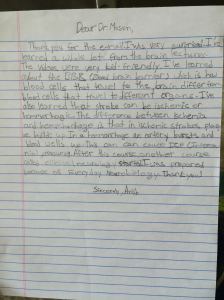 Dear Dr Mason,
Thank you for the email I was very surprised I've
learned a whole lot from the brain lectures.
The labs were very but friendly. I've learned
about the BBB (blood brain barrier) which is how
blood cells that travel to the brain differ from
blood cells that travel to different organs. I've
also learned that stroke can be ischemic or
hemorrhagic. The difference between ischemia
and hemorrhage is that in ischemic stroke, plaque
builds up. In a hemorrhage an artery bursts and
blood wells up. This can cause ICP (
pressure). After this course another course
was clinical neurology I was prepared
because of Everyday Neurobiology. Thank you!
Sincerely,